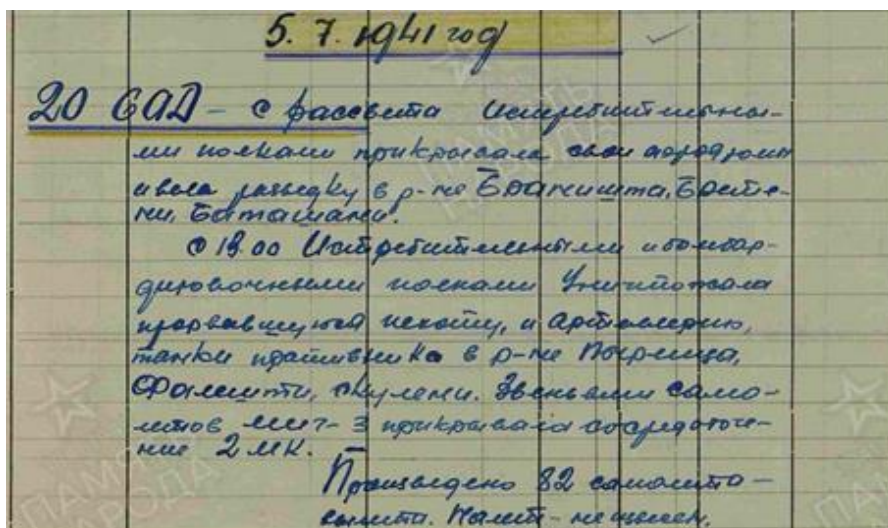 5. 7. 1941 год
20 САД - с рассвета Истребительны-
ми полками прикрывала свои аэродромы
и вела разведку в р-не Браништа, Брете-
ни, Баташани.
С 13.00 Истребительными и бомбар-
дировочными полками Уничтожала
прорвавшуюся пехоту, и артиллерию,
танки противника в р-не Пырлица,
Фалешти, Скулени. Звеньями само-
летов Миг-3 прикрывала сосредоточе-
ние 2 МК.
Произведено 82 самолето-
вылета. Налет -
ПАМЯТЬ
НАРОДА
ПАМЯТЬ
НАРОДА